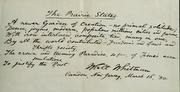 The Prairie States
A newer Garden of Creation – no primal solitude,
Dense, joyous, modern, populous millions, cities and farms,
With iron interlaced, composite, tied, many in one,
By all the world contributed – Freedom's and Law's and
Thrift's Society,
The crown and teeming Paradise, so far, of Time's accumulations,
To justify the Past.
Walt Whitman
Camden New Jersey, March